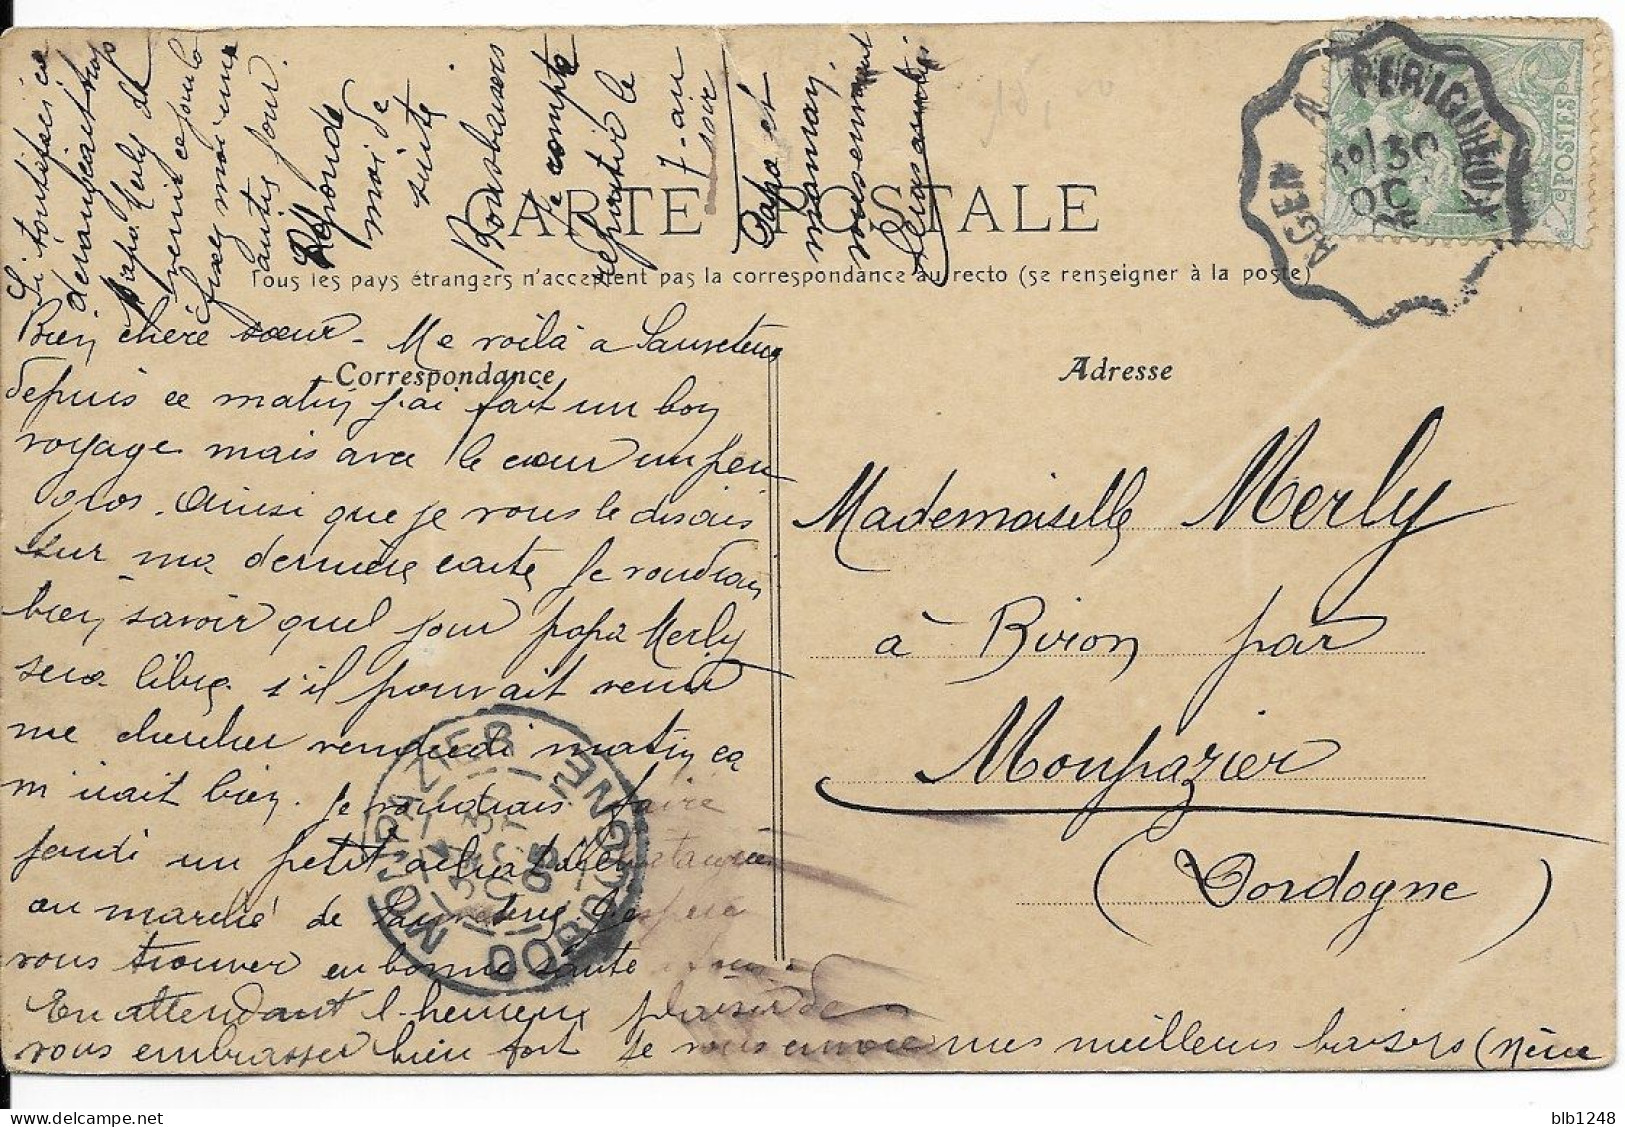 CARTE POSTALE
Tous les pays étrangers n'acceptent pas la correspondance au recto (se renseigner à la poste)
Correspondance
Adresse
Bien chère sœur - Me voilà a Sauveterre
depuis ce matin j'ai fait un bon
voyage mais avec le cœur un peu
gros. Ainsi que je vous le disais
sur ma dernière carte je voudrais
bien savoir quel jour papa Merly
sera libre s'il pouvait venir
me chercher vendredi matin ça
m'irait bien. Je voudrais faire
jeudi un petit achat
au marché de Sauveterre. J'espère
vous trouver en bonne santé
En attendant l'heureux plaisir de
vous embrasser bien fort je vous envoie mes meilleurs baisers
Si toutefois ça
dérangeait trop
papa Merly de
venir ce jour la
fixez moi une
autre jour.
Réponde
moi de
suite
Bons baisers
Je compte
repartir le
7 au
soir
Papa et
maman
vous envoient
leurs amitiés
Mademoiselle Merly
à Biron par
Monpazier
(Dordogne)
AGEN A PERIGUEUX
30
OC
POSTES
MONPAZIER
OCT
05
DORDOGNE
blb1248